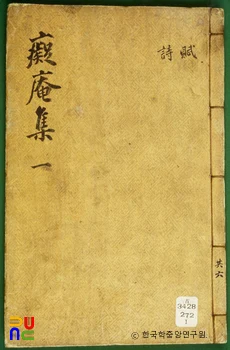 癡庵集 一
賦
詩
共六
3428
272
1
ⓒ 한국학중앙연구원